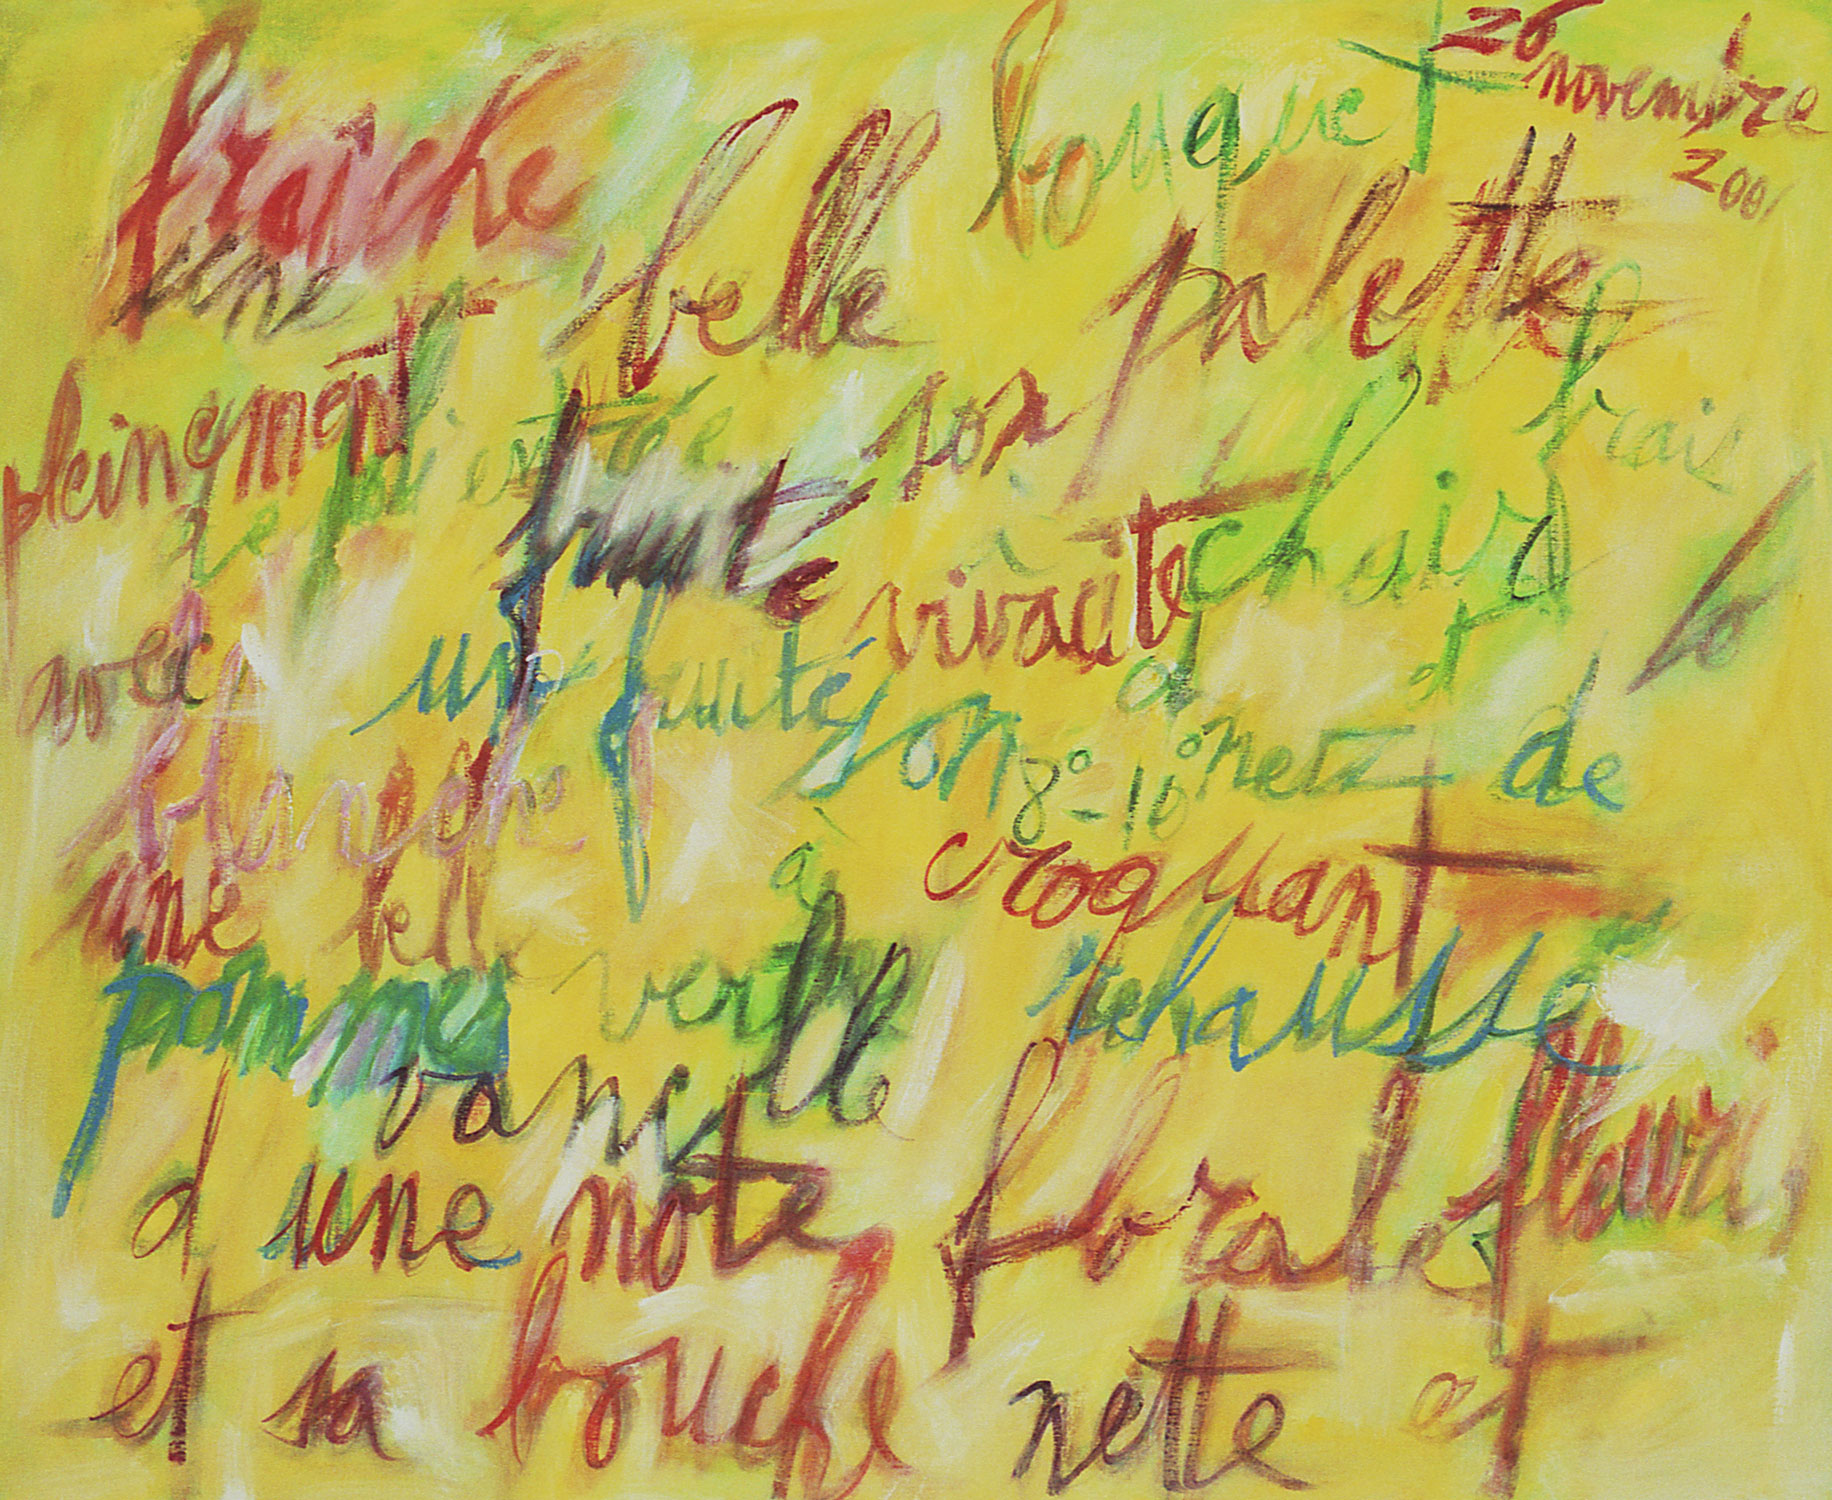 bouquet 26
novembre
fraîche
2001
une belle palette
pleinement son frais
de fruité vivacité chair
avec un fruité son nez de
8°-10°
blanche
une bell à croquant
pommes verte rehaussé
vanille fleuri,
d une note florale
et sa bouche nette et